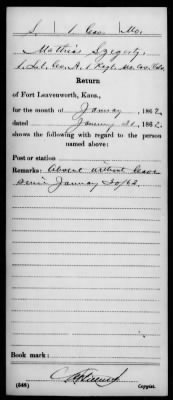 S 1 Cav. Mo.
Mathias Szegerty,
1. Lt., Co. A, 1 Regt. Mo. Cav. Vols.
Return
of Fort Leavenworth, Kans.,
for the month of January , 1862.
dated January 31 , 1862.
shows the following with regard to the person
named above:
Post or station
Remarks: Absent without leave
since January 20/62.
Book mark:
(548) Copyist.